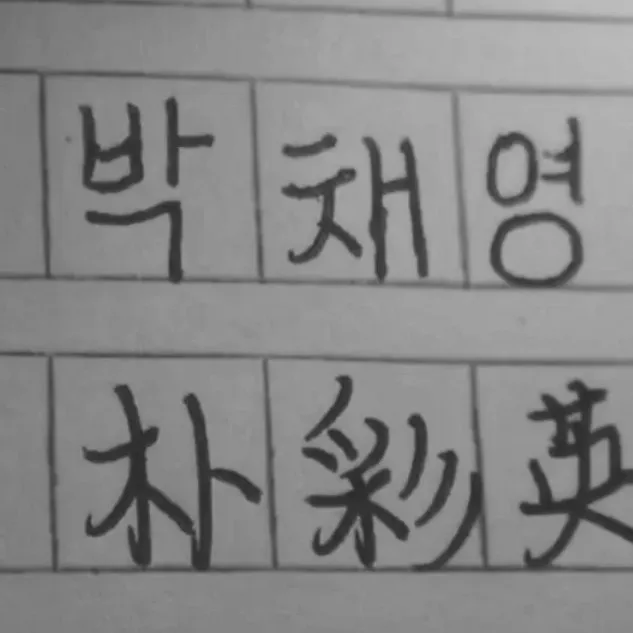 박채영
朴彩英